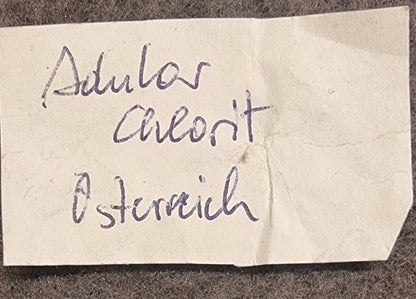 Adular
Chlorit
Österreich